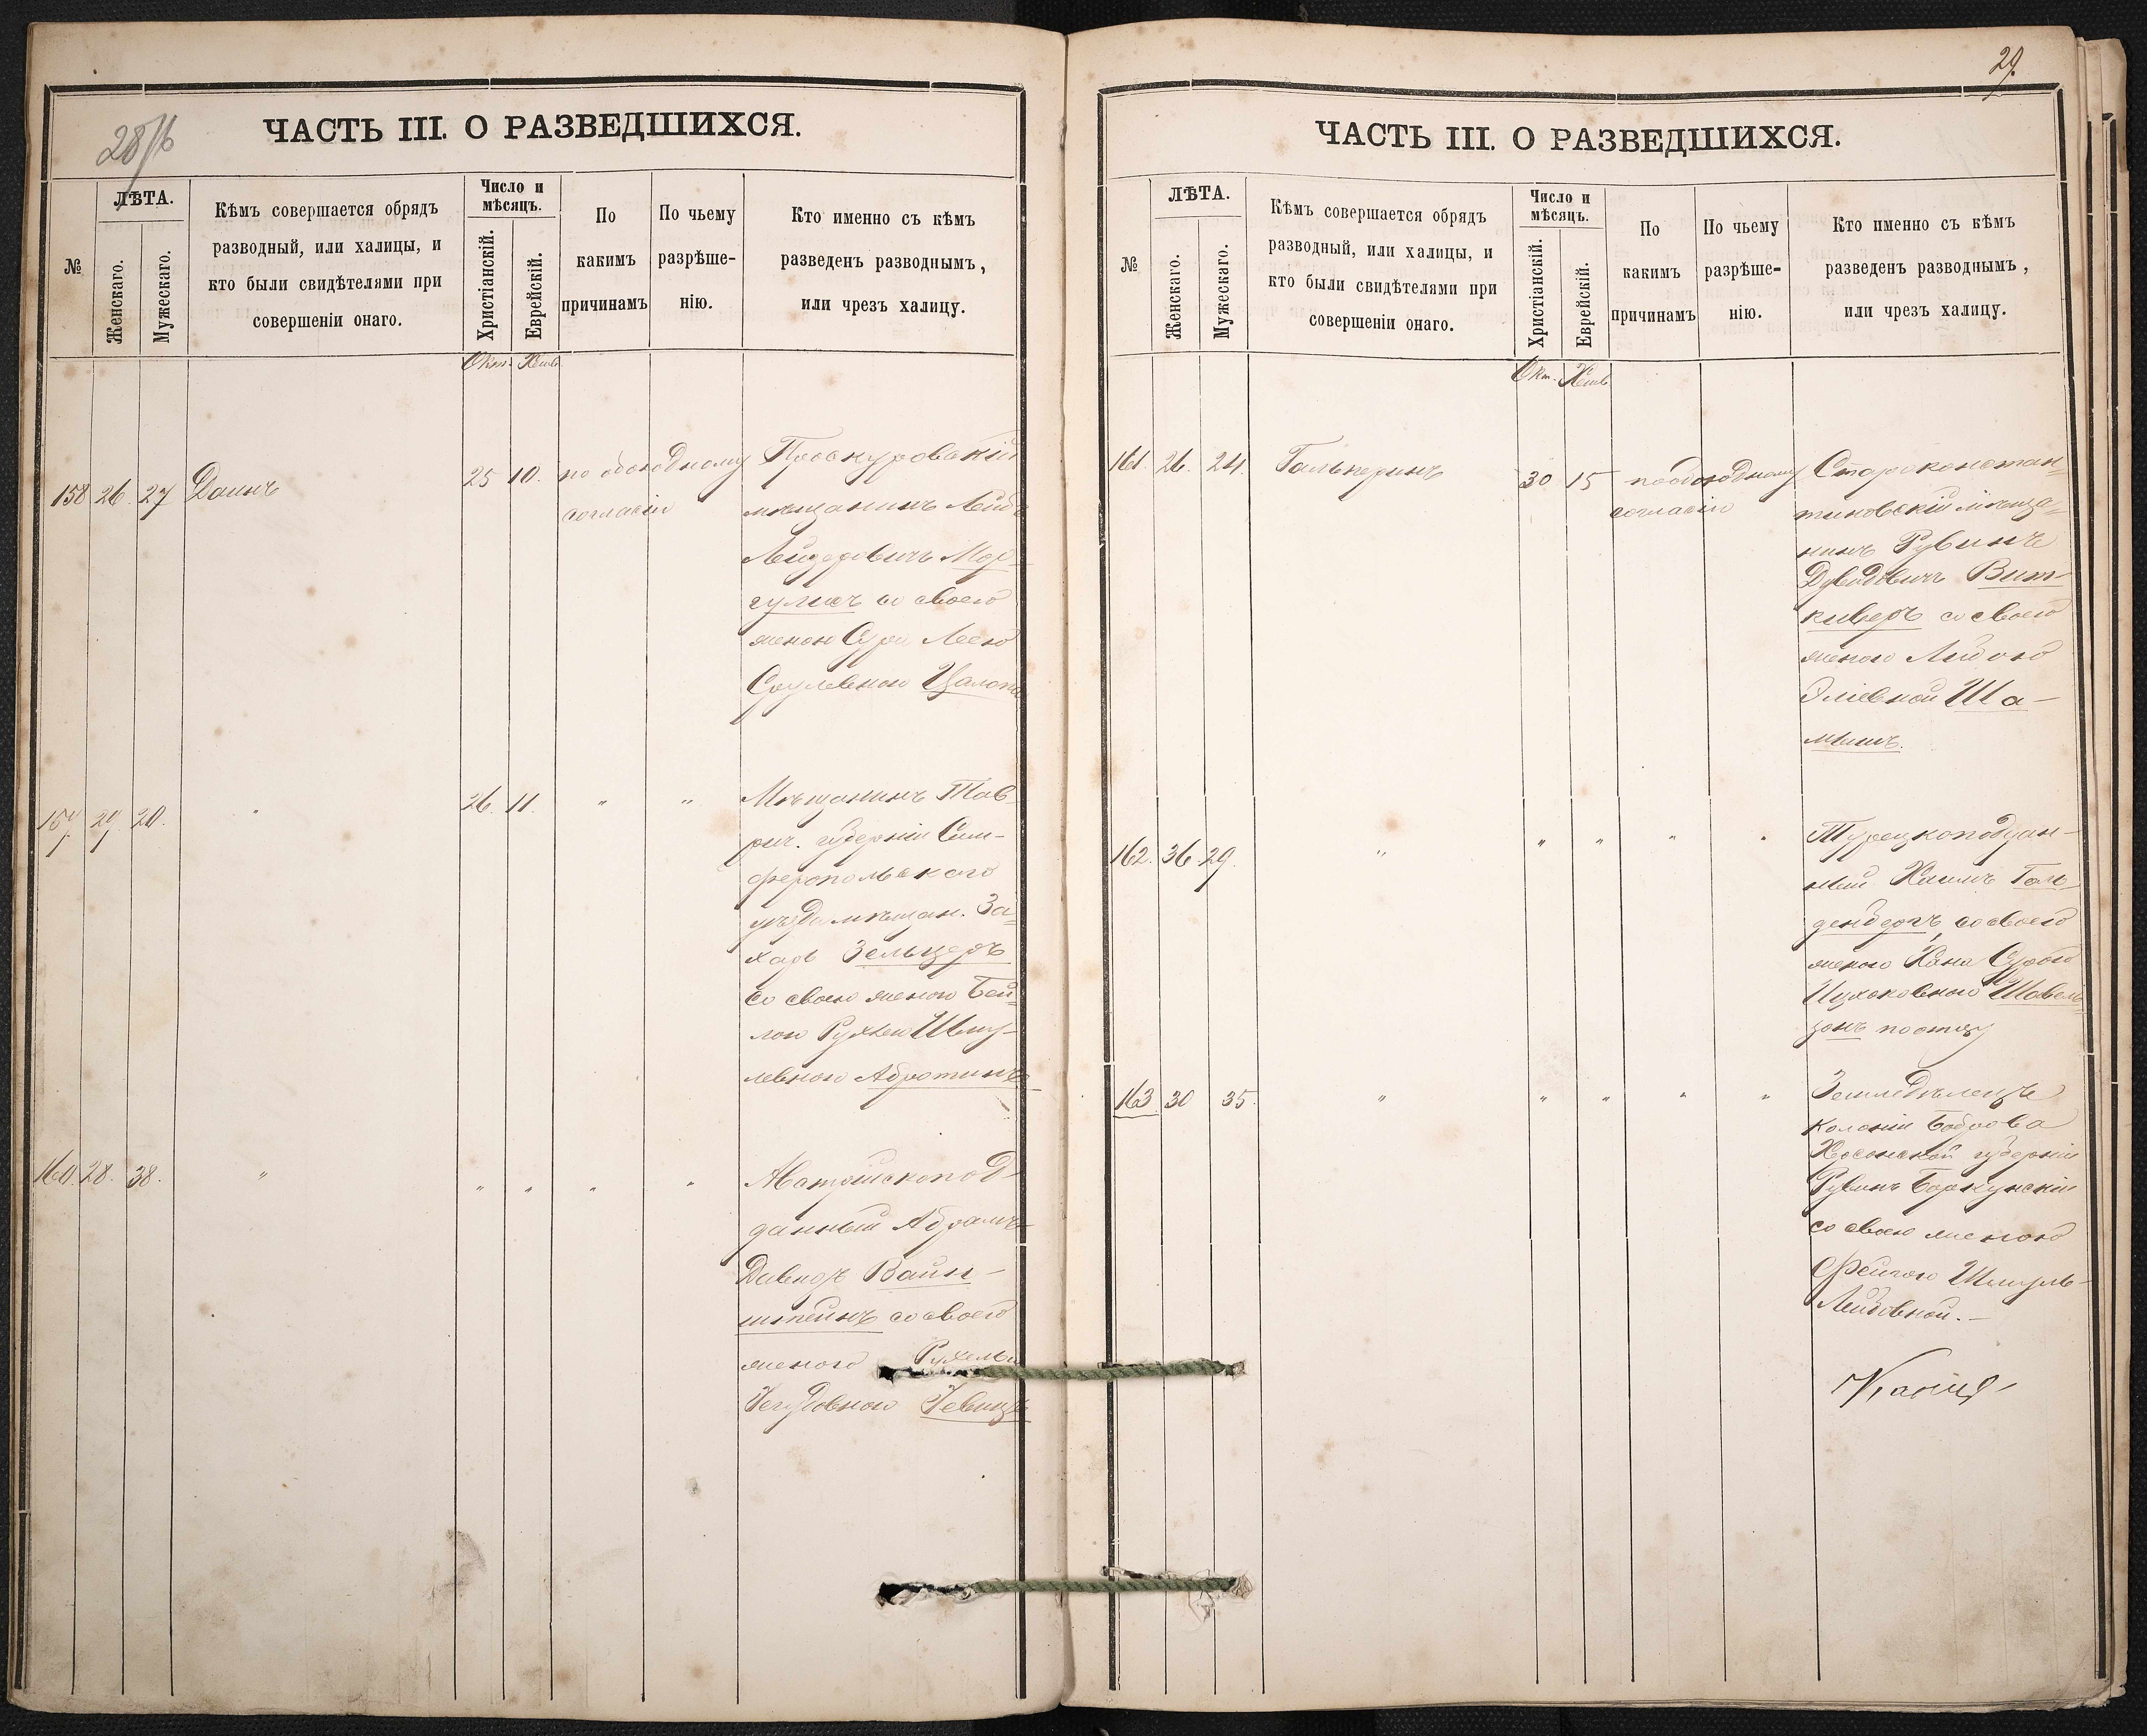 28/б
ЧАСТЬ III. О РАЗВЕДШИХСЯ.
№
ЛѢТА.
Женскаго.
Мужескаго.
Кѣмъ совершается обрядъ
разводный, или халицы, и
кто были свидѣтелями при
совершеніи онаго.
Число и
мѣсяцъ.
Христіанскій.
Еврейскій.
По
какимъ
причинамъ
По чьему
разрѣше-
нію.
Кто именно съ кѣмъ
разведенъ разводнымъ,
или чрезъ халицу.
Окт. Хешв.
158 26. 27 Даинъ 25 10. по обоюдному
согласію
Проскуровскій
мѣщанинъ Лейб
Лейзеровичъ Мар-
гулисъ со своею
женою Сура Леею
Сруловною
159. 29. 20. " 26. 11. " "
Мѣщанинъ Тав-
рич. губерніи Сим-
феропольскаго
уѣзда мѣщан. За-
харъ Зельцеръ
со своею женою Бей-
лою Рухлею Шму-
левною Абротинъ
160. 28. 38. " " " " "
Австрійскопод-
данный Абрамъ
Давидъ Вайн-
штейнъ со своею
женою Рухель
29.
ЧАСТЬ III. О РАЗВЕДШИХСЯ.
№
ЛѢТА.
Женскаго.
Мужескаго.
Кѣмъ совершается обрядъ
разводный, или халицы, и
кто были свидѣтелями при
совершеніи онаго.
Число и
мѣсяцъ.
Христіанскій.
Еврейскій.
По
какимъ
причинамъ
По чьему
разрѣше-
нію.
Кто именно съ кѣмъ
разведенъ разводнымъ,
или чрезъ халицу.
Окт. Хешв
161. 26. 24. Гальперинъ 30 15 по обоюдному
согласію
Староконстан-
тиновскій мѣща-
нинъ Рувинъ
Дувидовичъ Вит-
киверъ со своею
женою
Эліевной Ша-
162. 36. 29. " " " " "
Турецкоподдан-
ный ХаимъГоль-
денбергъ, со своею
женою Хана Сурою
Ицхоковною Шавель-
зонъ по отцу
163. 30 35. " " " " "
Земледѣлецъ
колоніи Боброва
Херсонской губерніи
Рувинъ Боркунскій
со своею женою
Фейгою Шмуль-
Лейбовной.-